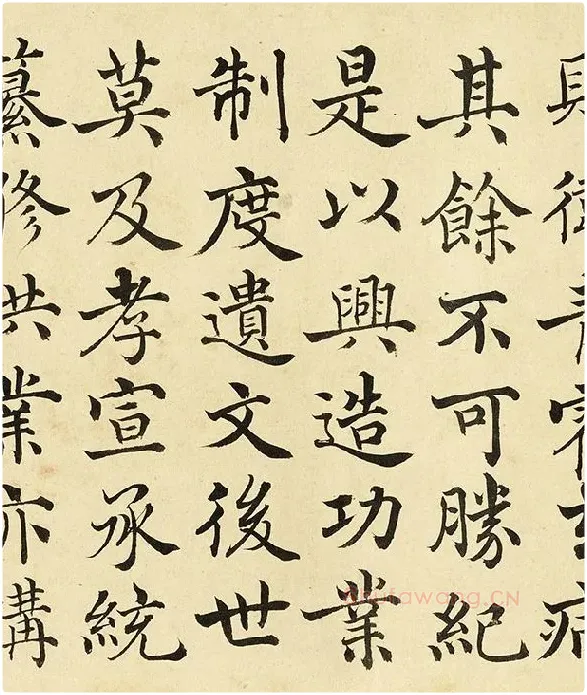 其餘不可勝紀
是以興造功業
制度遺文後世
莫及孝宣承統
纂修業亦
shufawang.CN